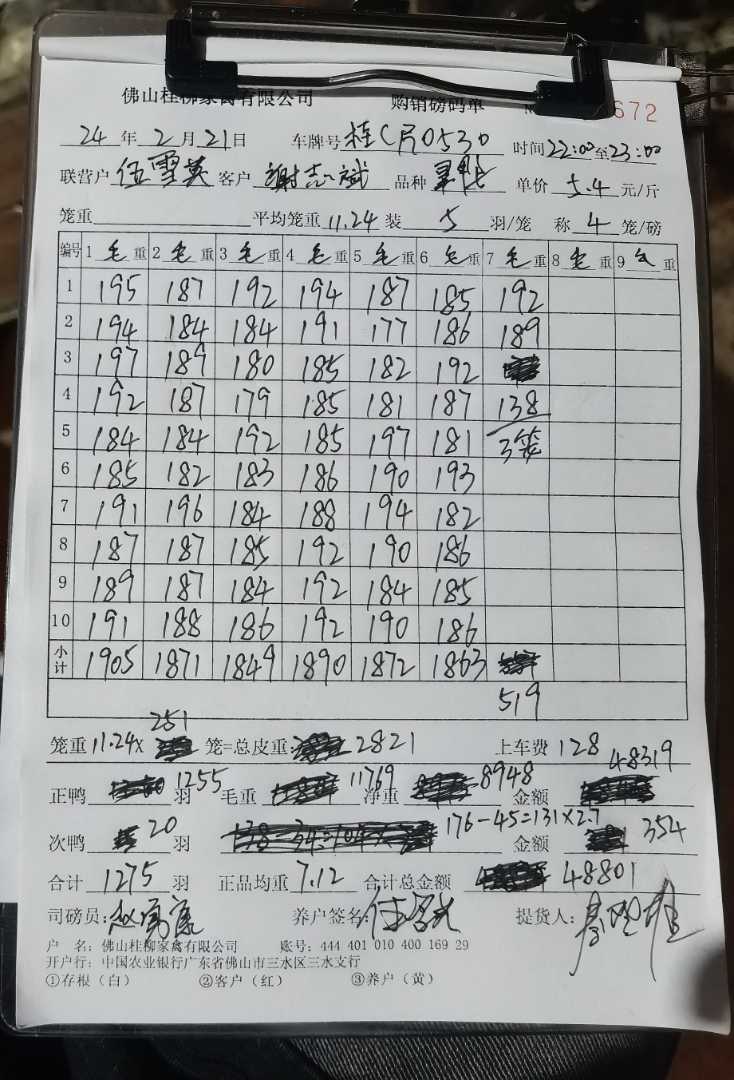 佛山桂柳家禽有限公司 购销磅码单 672
24 年 2 月 21 日 车牌号 桂C 0530 时间 22:00 至 23:00
联营户 伍雪英 客户 谢志斌 品种 单价 5.4 元/斤
笼重 平均笼重 11.24 装 5 羽/笼 称 4 笼/磅
编号 1 毛 重 2 毛 重 3 毛 重 4 毛 重 5 毛 重 6 毛 重 7 毛 重 8 毛 重 9 重
1 195 187 192 194 187 185 192
2 194 184 184 191 177 186 189
3 197 189 180 185 182 192
4 192 187 179 185 181 187 138
5 184 184 192 185 197 181 3笼
6 185 182 183 186 190 193
7 191 196 184 188 194 182
8 187 187 185 192 190 186
9 189 187 184 192 184 185
10 191 188 186 192 190 186
小计 1905 1871 1849 1890 1872 1863
519
笼重 11.24× 251 笼=总皮重: 2821 上车费 128
正鸭 1255 羽 毛重 11769 净重 8948 金额 48319
次鸭 20 羽 176-45=131×2.7 金额 354
合计 1275 羽 正品均重 7.12 合计总金额 48801
司磅员: 养户签名: 提货人:
户 名: 佛山桂柳家禽有限公司 账号: 444 401 010 400 169 29
开户行: 中国农业银行广东省佛山市三水区三水支行
①存根（白） ②客户（红） ③养户（黄）